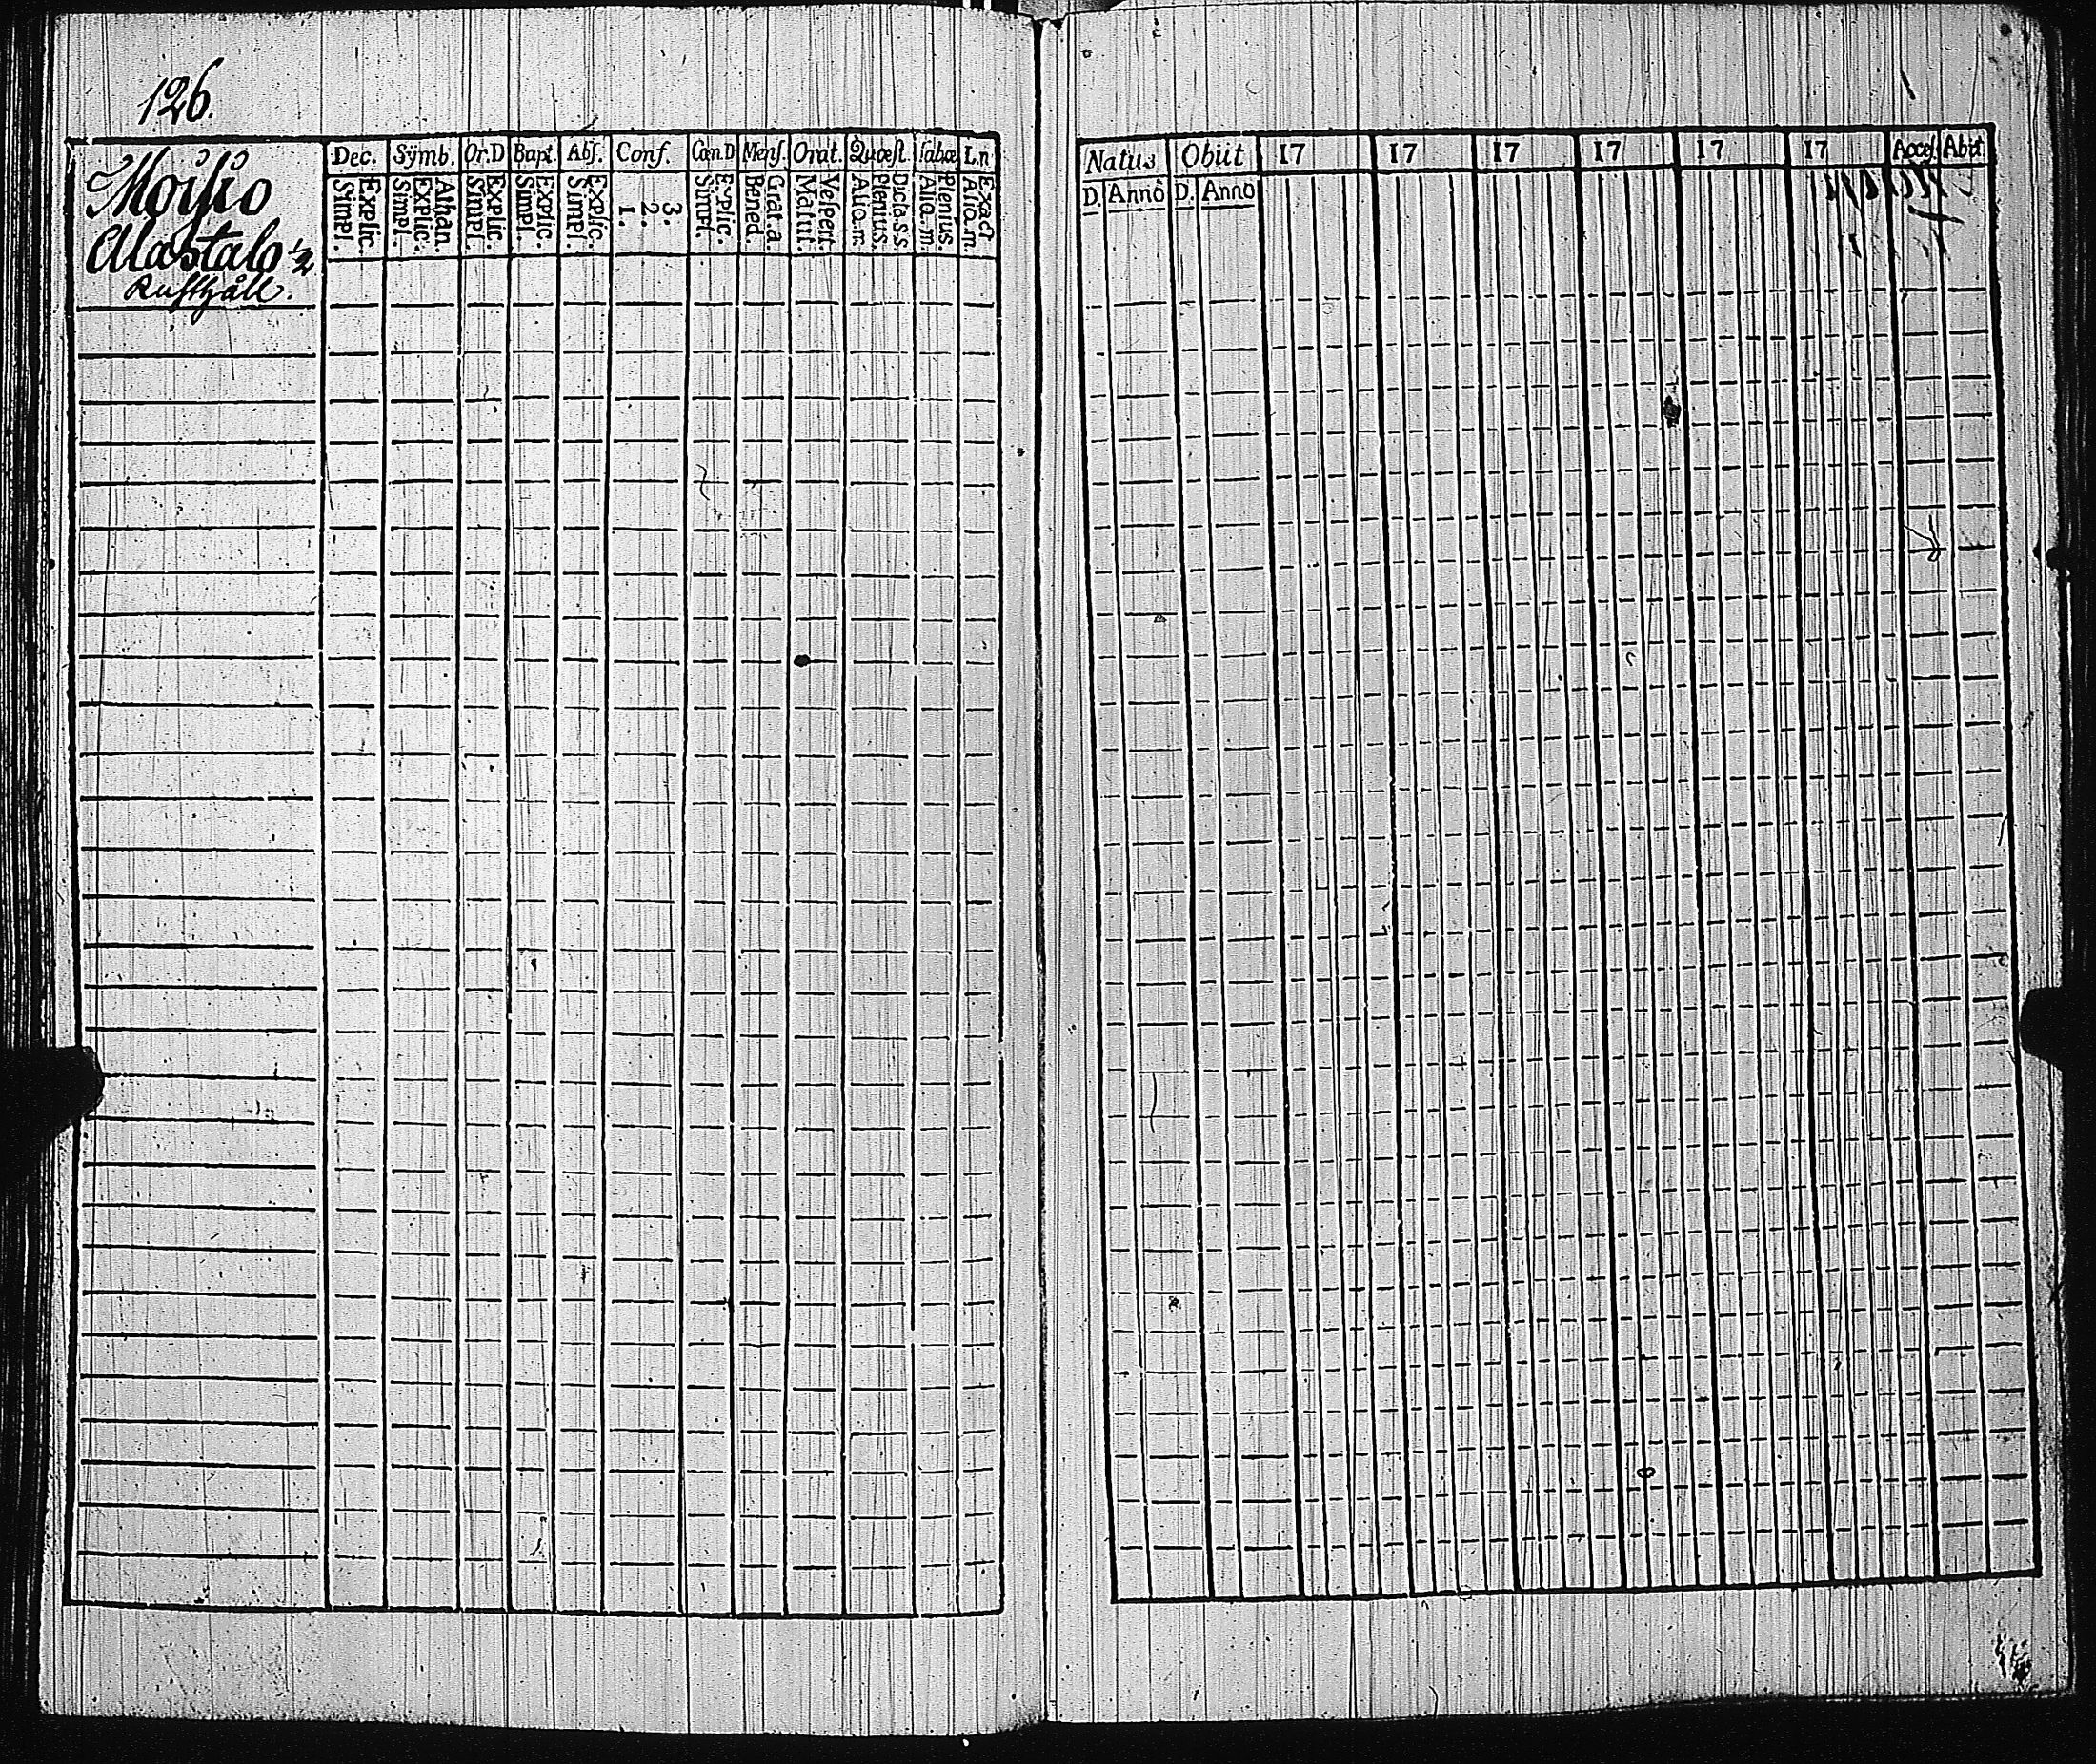 126.
Moisio
Alastalo 1/2
Rusthåll.
Dec. Symb. Or.D Bapt. Abs. Conf. Cœn.D Mens. Orat. Quæst. Tabæ L.n
Explic. Simpl.
Athan Explic. Simpl.
Explic. Simpl.
Explic. Simpl.
Explic. Simpl.
3. 2. 1.
Explic. Simpl.
Grat.a. Bened.
Vespert. Matut.
Dicta.s.s Plenius. Alia.m.
Plenius. Alia.m.
Exact Alia.m.
Natus Obiit 17 17 17 17 17 17 Acces. Abiit
D. Anno D. Anno